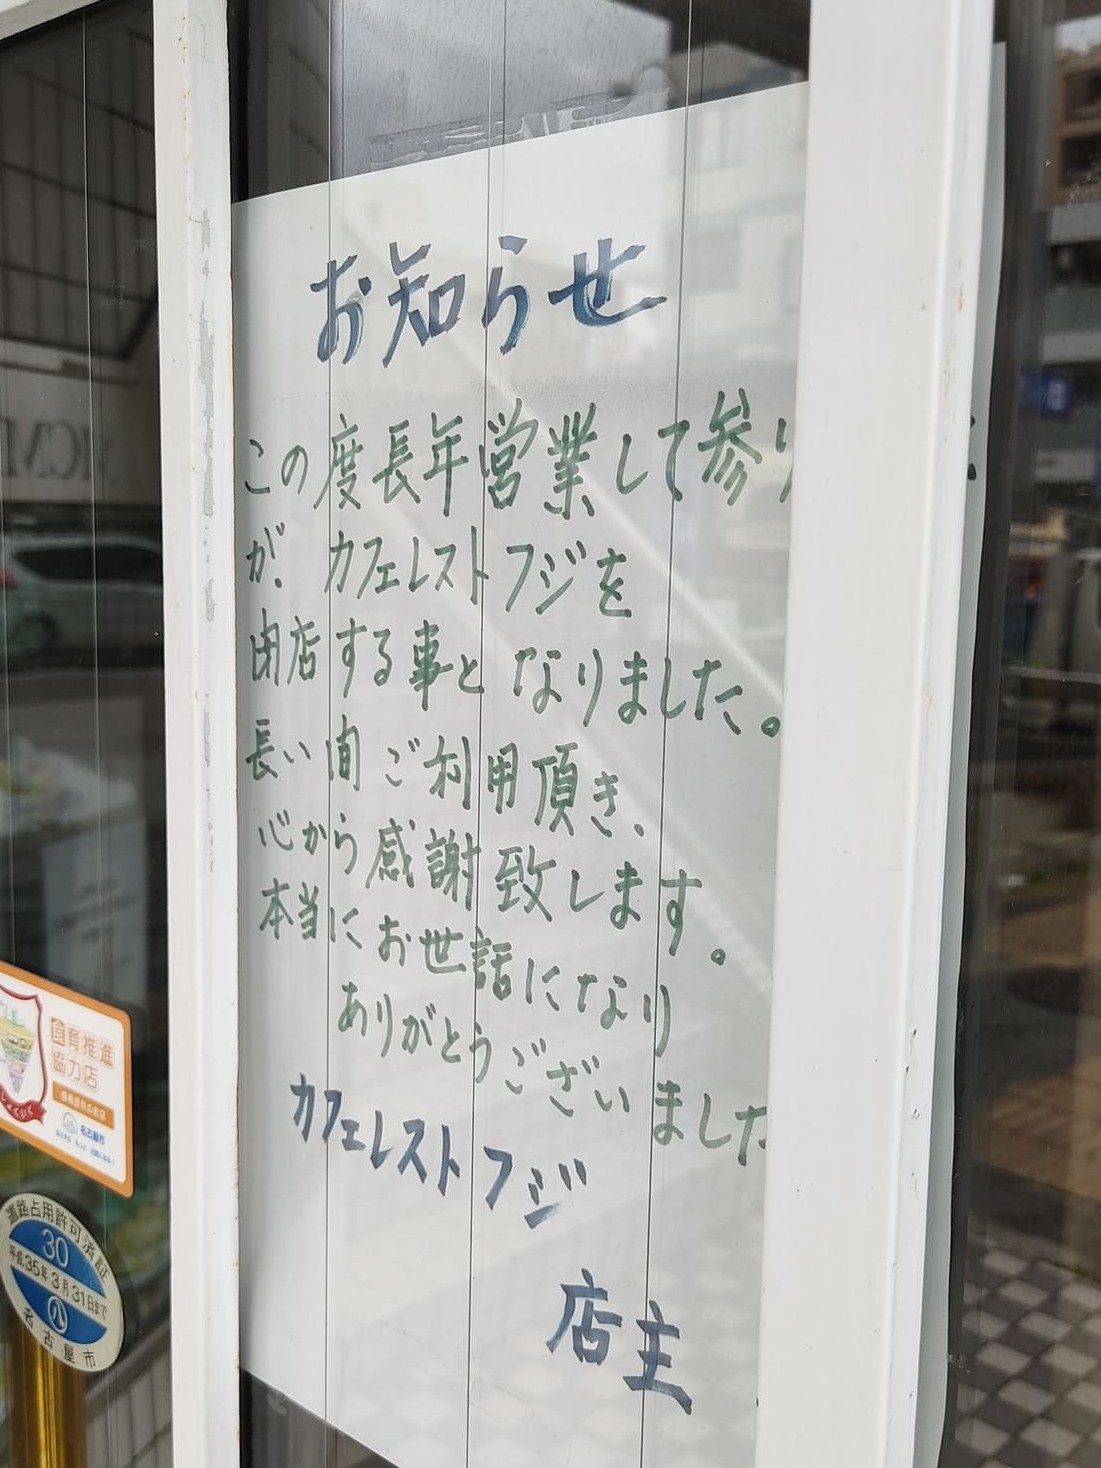 お知らせ
この度長年営業して参り
が、カフェレストフジを
閉店する事となりました。
長い間ご利用頂き、
心から感謝致します。
本当にお世話になり
ありがとうございました
カフェレストフジ
店主
食育推進
協力店
名古屋市
道路占用許可済証
30
平成35年3月31日まで
八
名古屋市